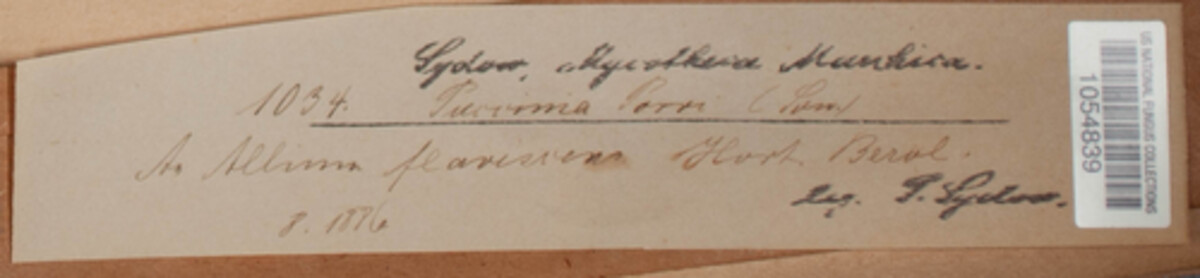 Sydow, Mycotheca Marchica.
1034. Puccinia Porri (Sow.)
An Allium flavescens Hort. Berol.
leg. P. Sydow.
8. 1886
US NATIONAL FUNGUS COLLECTIONS
1054839